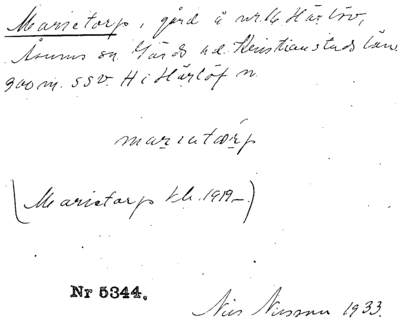 Marietorp, gård å nr 16 Härlöv,
Åsums sn Gärds hd. Kristianstads län
900 m. SSV. H i Härlöf n.
mariatårp
(Marietorp tk. 1919–)
Nr 5344.
Nils Nilsson 1933.